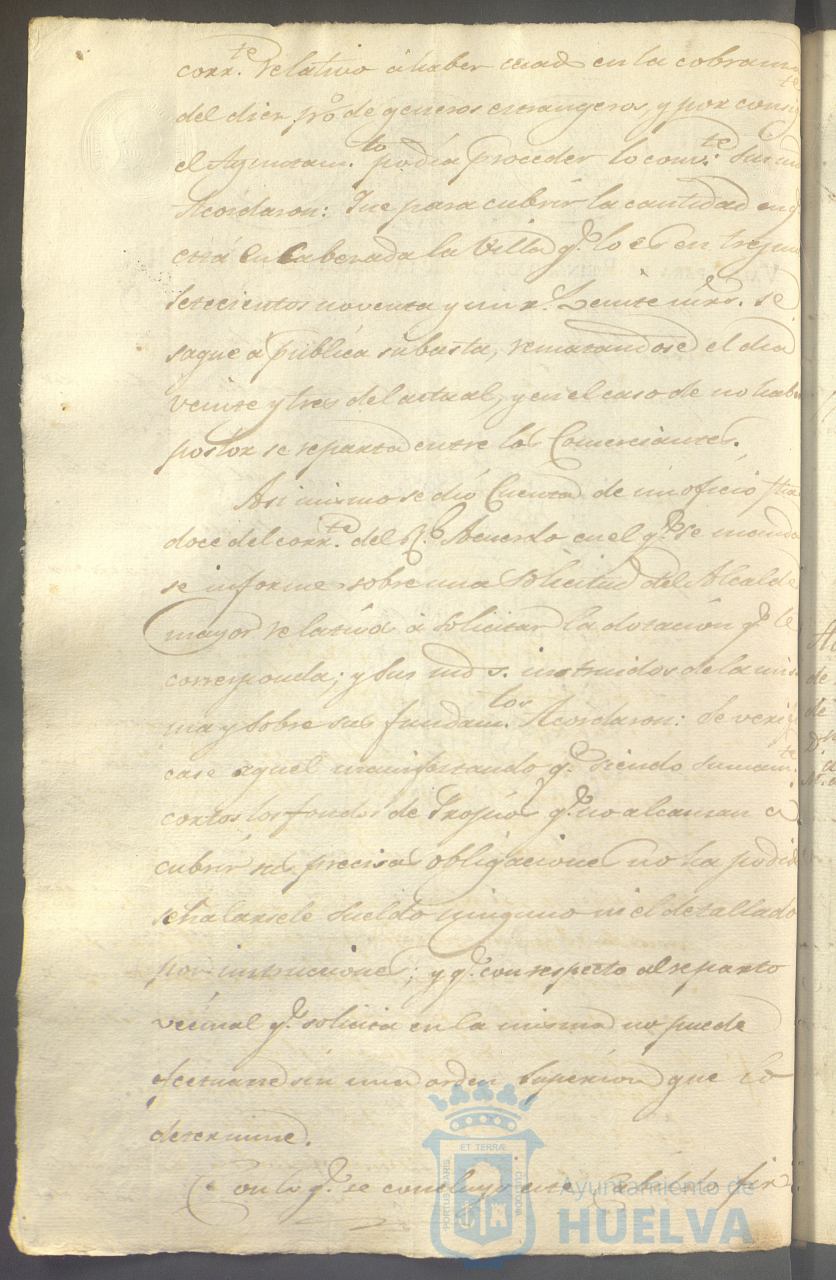 corr.te relativo á haber cesado en la cobranza
del diez p.o de generos extrangeros, y por consig.te
el Ayuntam.to podia proceder lo conv.te Sus md
Acordaron: Que para cubrir la cantidad en q.
está encabezada la Villa q.e lo es en tres mil
setecientos noventa y un r.s veinte mrs. se
saque á publica subasta, rematandose el dia
veinte y tres del actual, y en el caso de no haber
postor se reparta entre los Comerciantes.
Asi mismo se dió Cuenta de un oficio fha
doce del corr.te del R.l Acuerdo en el q.e se manda
se informe sobre una solicitud del Alcalde
mayor relativa á solicitar la dotacion q.e le
corresponda; y sus md s. instruidos de la mis
ma y sobre sus fundam.tos Acordaron: Se verifi
case aquel manifestando q.e siendo sumam.te
cortos los fondos de Propios q.e no alcanzan á
cubrir sus precisas obligaciones no ha podido
señalarsele sueldo ninguno ni el detallado
por instruciones; y q.e con respecto al reparto
vecinal q.e solicita en la misma no puede
efectuarse sin una orden superior que lo
determine.
Con lo q.e se concluyó este Cabildo fir
ET TERRÆ
PORTUS MARIS
CUSTODIA
Ayuntamiento de
HUELVA